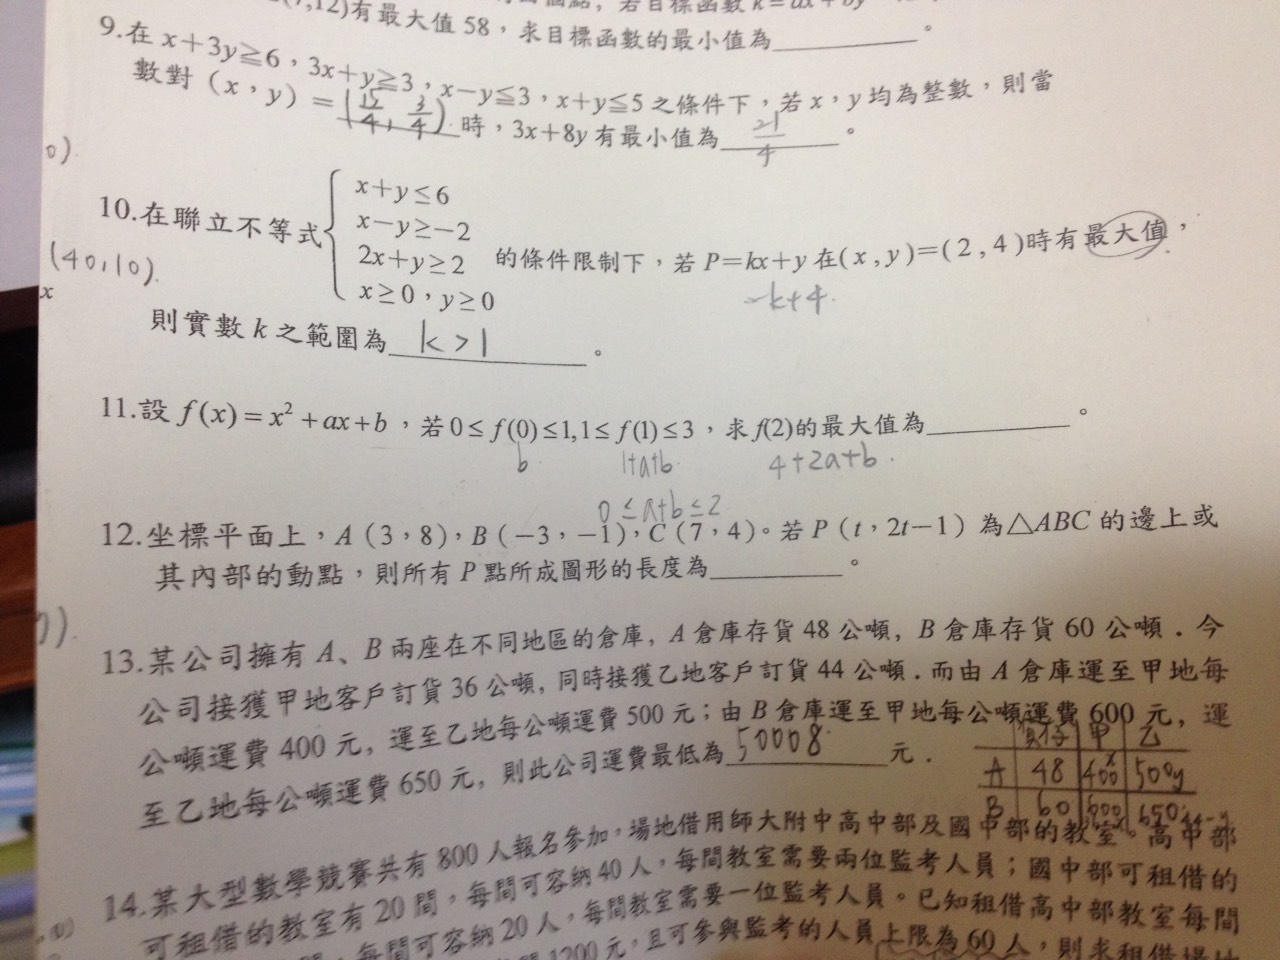 7,12)有最大值58,求目標函數的最小值為____。
9.在 x+3y≧6,3x+y≧3,x-y≦3,x+y≦5 之條件下,若 x,y 均為整數,則當
數對(x,y)=(15/4, 3/4)時,3x+8y 有最小值為 21/4 。
0).
10.在聯立不等式{ x+y≤6
x-y≥-2
2x+y≥2 的條件限制下,若 P=kx+y 在(x,y)=(2,4)時有最大值,
x≥0,y≥0
(40,10).
x
k+4.
則實數 k 之範圍為 k>1 。
11.設 f(x)=x²+ax+b,若0≤f(0)≤1,1≤f(1)≤3,求f(2)的最大值為____。
b 1+a+b 4+2a+b.
0≤a+b≤2
12.坐標平面上,A(3,8),B(-3,-1),C(7,4)。若 P(t,2t-1)為△ABC 的邊上或
其內部的動點,則所有 P 點所成圖形的長度為____。
13.某公司擁有 A、B 兩座在不同地區的倉庫, A 倉庫存貨 48 公噸, B 倉庫存貨 60 公噸.今
公司接獲甲地客戶訂貨 36 公噸, 同時接獲乙地客戶訂貨 44 公噸.而由 A 倉庫運至甲地每
公噸運費 400 元, 運至乙地每公噸運費 500 元;由 B 倉庫運至甲地每公噸運費 600 元, 運
至乙地每公噸運費 650 元, 則此公司運費最低為 50008 元.
甲 乙
A 48 400x 500y
B 60 600 650
14.某大型數學競賽共有 800 人報名參加,場地借用師大附中高中部及國中部的教室。高中部
可租借的教室有 20 間,每間可容納40人,每間教室需要兩位監考人員;國中部可租借的
每間可容納 20 人,每間教室需要一位監考人員。已知租借高中部教室每間
1200元,且可參與監考的人員上限為 60 人,則求租借場地